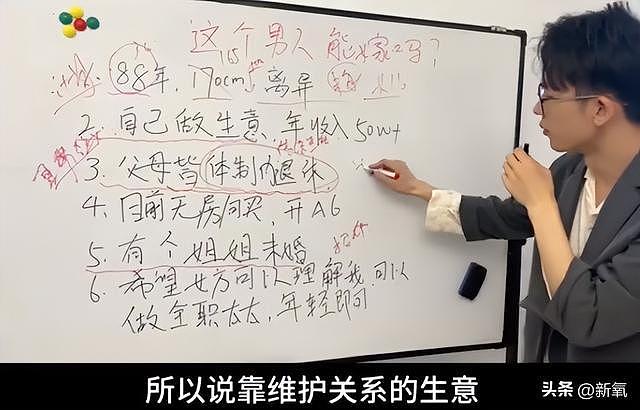 这个男人能嫁吗?
88年, 170cm, 离异
2. 自己做生意, 年收入50w+
3. 父母皆体制内退休
4. 目前无房可买, 开A6
5. 有个姐姐未婚
6. 希望女方可以理解我, 可以
做全职太太, 年轻即可
所以说靠维护关系的生意
头条 @新氧